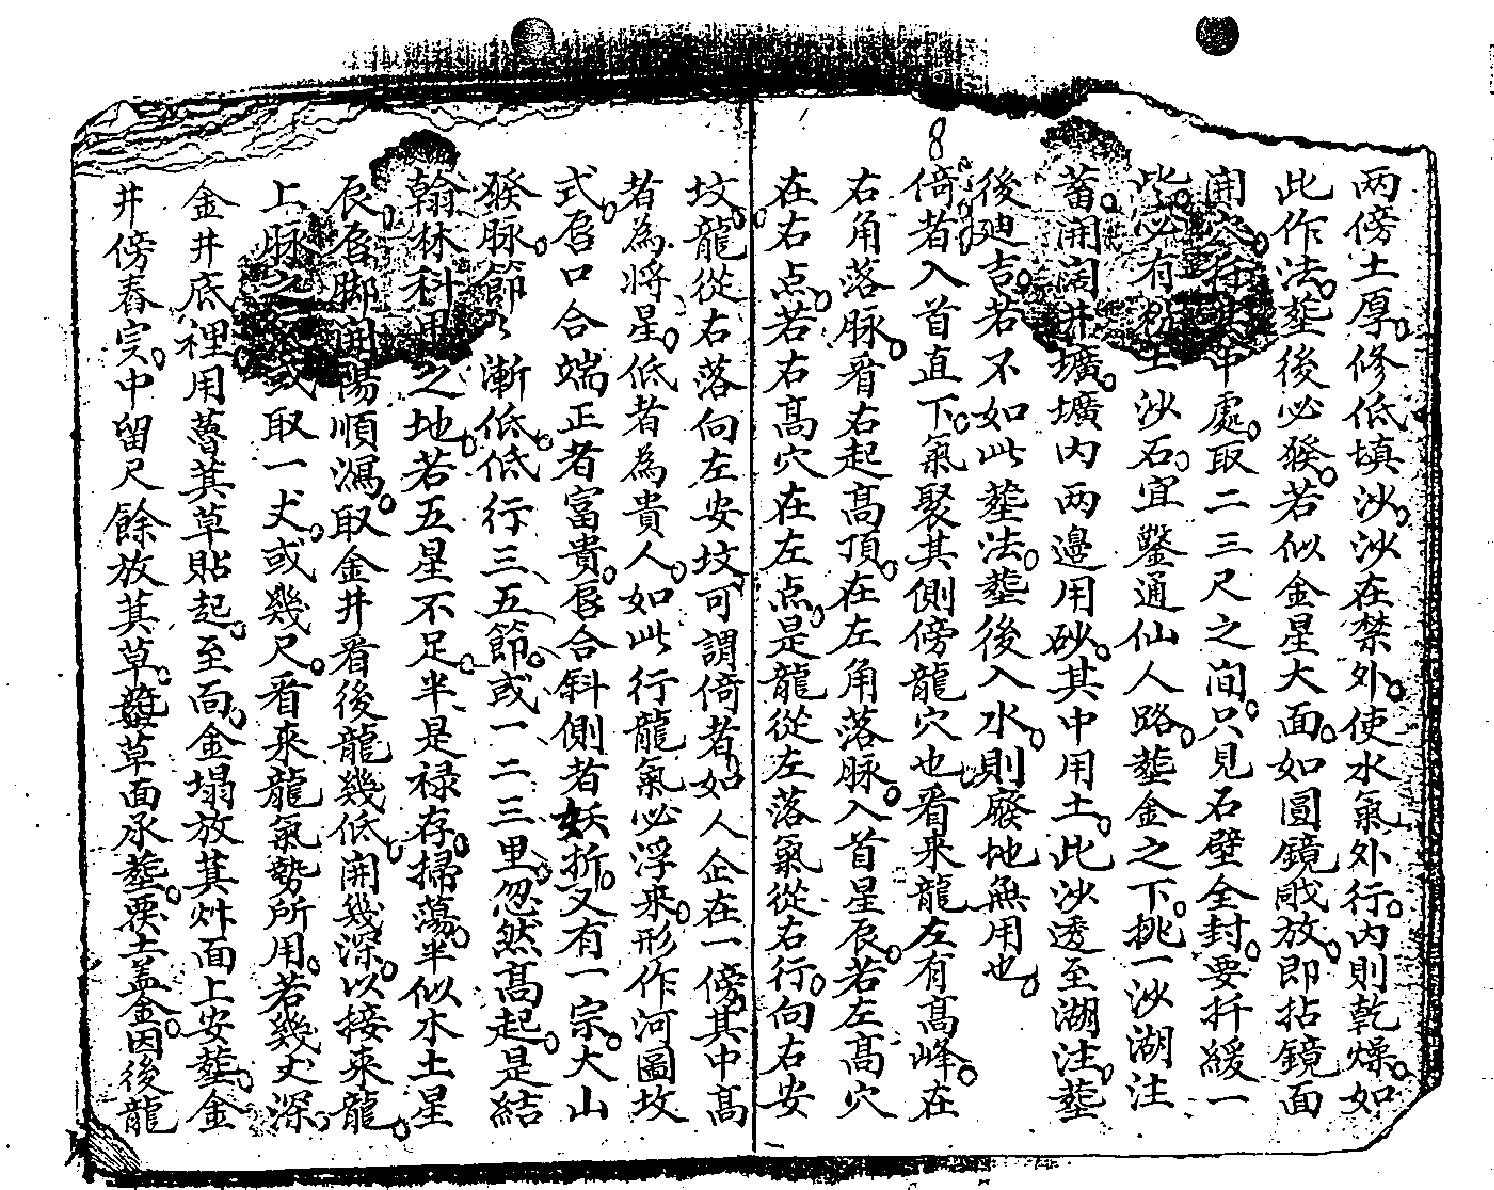 8
两傍土厚修低填沙沙在禁外使水氣外行内則乾燥如
此作法塟後必發若似金星大面如圓鏡戙放即拈鏡面
開穴行其中處取二三尺之间只見石壁全封要扦緩一
此必有粉土沙石宜鑿通仙人路塟金之下挑一沙湖注
蓄開阔井壙壙内两邊用砂其中用土此沙透至湖注塟
後廻吉若不如此塟法塟後入水則廢地無用也
倚者入首直下氣聚其側傍龍穴也看来龍左有高峰在
右角落脉看右起高頂在左角落脉入首星辰若左高穴
在右点若右高穴在左点是龍從左落氣從右行向右安
坟龍從右落向左安坟可謂倚者如人企在一傍其中高
者為将星低者為貴人如此行龍氣必浮来形作河圖坟
式唇口合端正者富貴唇合斜側者妖折又有一宗大山
發脉節々漸低低行三五節或一二三里忽然高起是結
翰林科甲之地若五星不足半是禄存掃蕩半似木土星
辰唇脚開陽順漏取金井看後龍幾低開幾深以接来龍
上脉之或取一丈或幾尺看来龍氣勢所用若幾丈深
金井底裡用蓸萁草貼起至面金塌放萁艸面上安塟金
井傍舂实中留尺餘放萁草草面承塟要土盖金因後龍